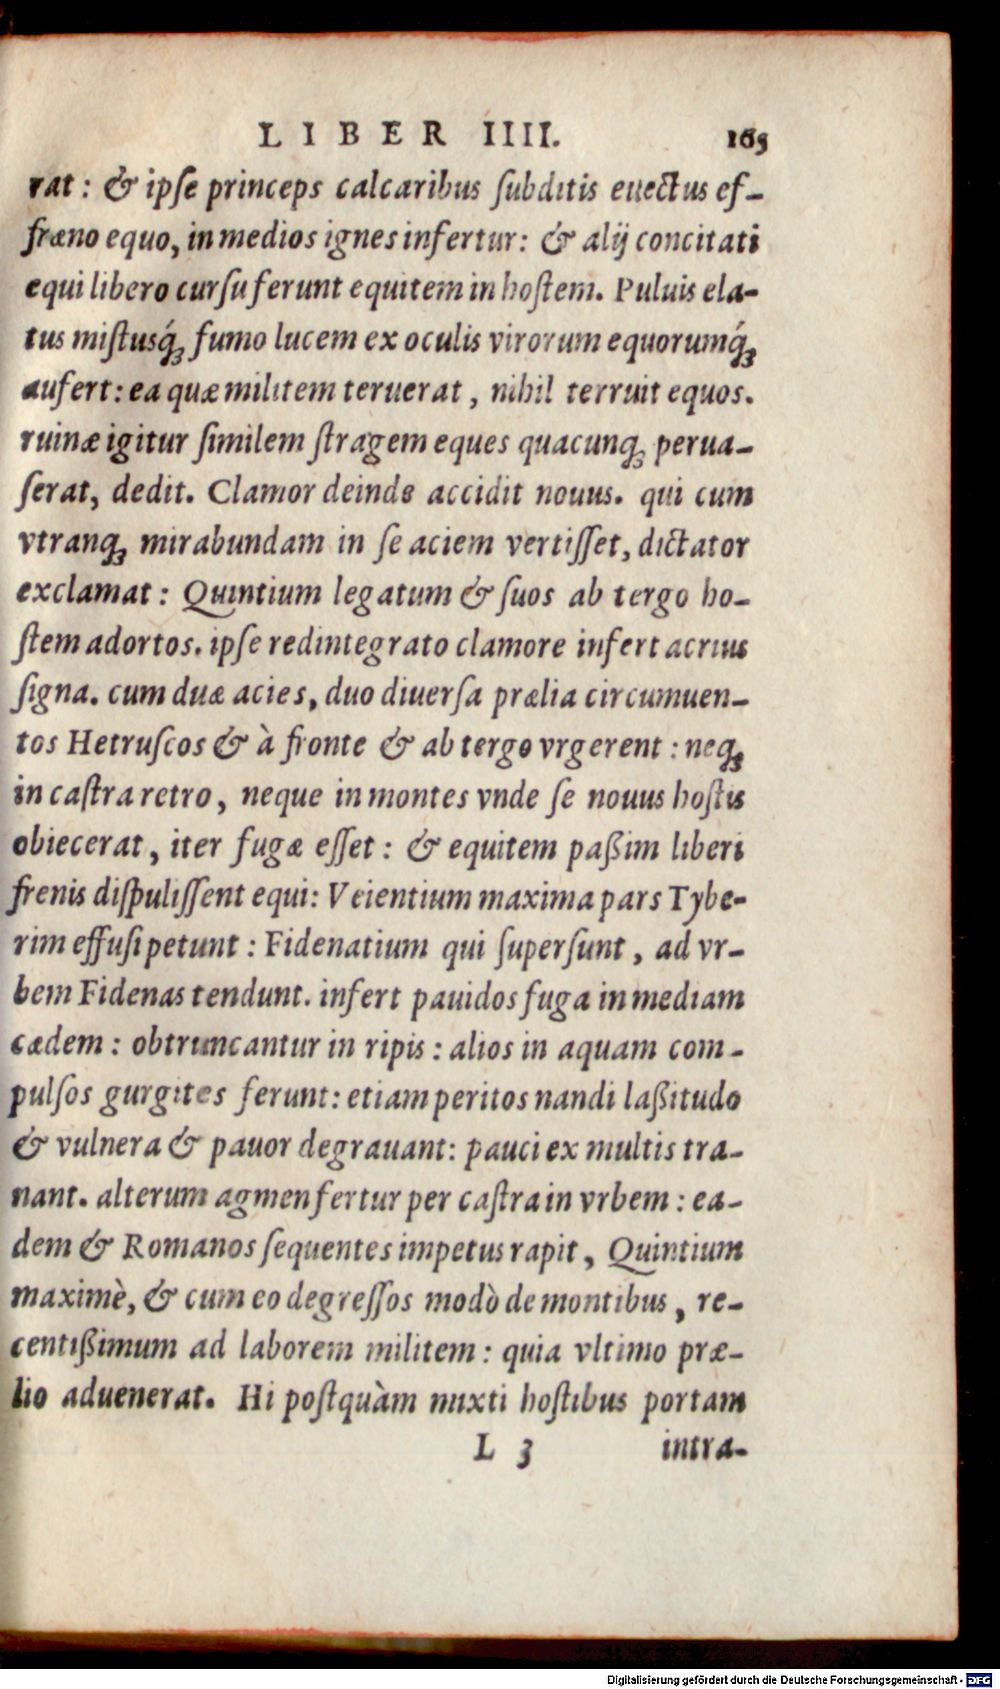 LIBER IIII. 165
rat: & ipſe princeps calcaribus ſubditis euectus ef-
fræno equo, in medios ignes infertur: & alij concitati
equi libero curſu ferunt equitem in hoſtem. Puluis ela-
tus miſtusq́ꝫ fumo lucem ex oculis virorum equorumq́ꝫ
aufert: ea quæ militem teruerat, nihil terruit equos.
ruinæ igitur ſimilem ſtragem eques quacunqꝫ perua-
ſerat, dedit. Clamor deinde accidit nouus. qui cum
vtranqꝫ mirabundam in ſe aciem vertiſſet, dictator
exclamat: Quintium legatum & ſuos ab tergo ho-
ſtem adortos. ipſe redintegrato clamore infert acrius
ſigna. cum duæ acies, duo diuerſa prælia circumuen-
tos Hetruſcos & à fronte & ab tergo vrgerent: neqꝫ
in caſtra retro, neque in montes vnde ſe nouus hoſtis
obiecerat, iter fugæ eſſet: & equitem paßim liberi
frenis diſpuliſſent equi: Veientium maxima pars Tybe-
rim effuſi petunt: Fidenatium qui ſuperſunt, ad vr-
bem Fidenas tendunt. infert pauidos fuga in mediam
cædem: obtruncantur in ripis: alios in aquam com-
pulſos gurgites ferunt: etiam peritos nandi laßitudo
& vulnera & pavor degrauant: pauci ex multis tra-
nant. alterum agmen fertur per caſtra in vrbem: ea-
dem & Romanos ſequentes impetus rapit, Quintium
maximè, & cum eo degreſſos modò de montibus, re-
centißimum ad laborem militem: quia vltimo præ-
lio aduenerat. Hi poſtquàm mixti hoſtibus portam
L 3 intra-
Digitalisierung gefördert durch die Deutsche Forschungsgemeinschaft - DFG